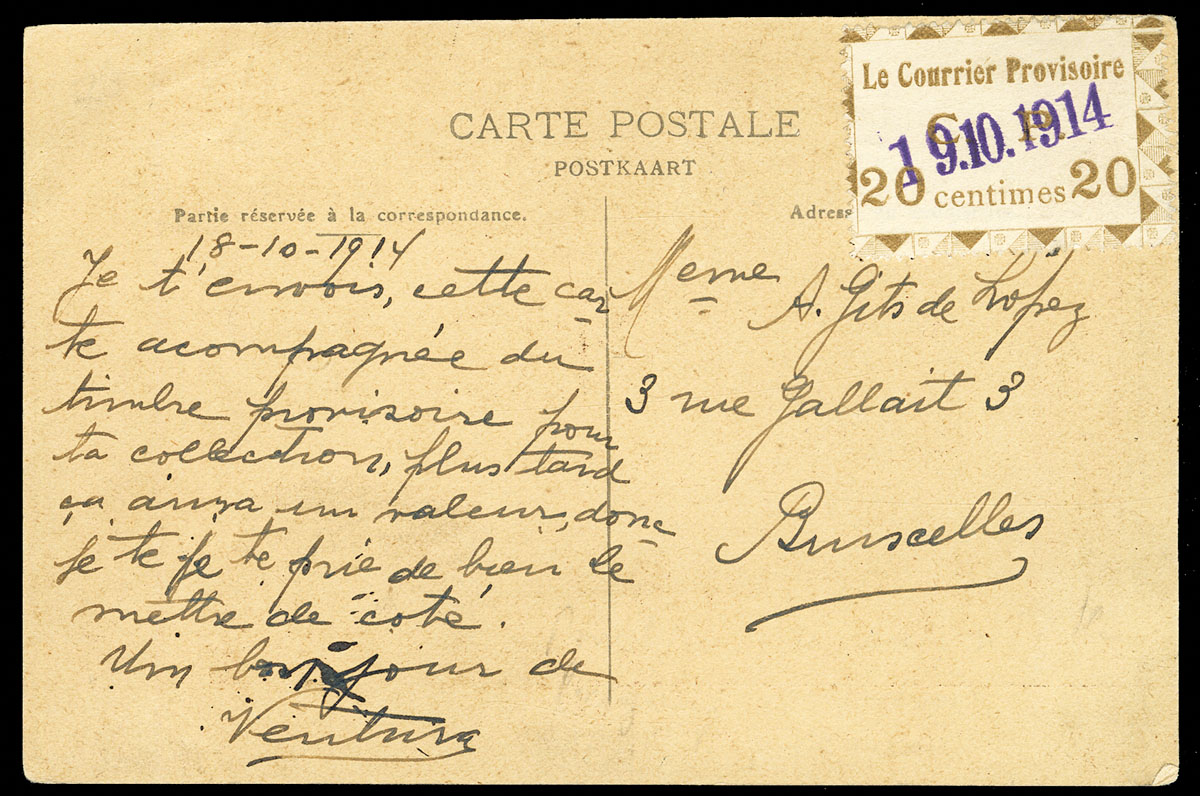 CARTE POSTALE
POSTKAART
Le Courrier Provisoire
C R
19.10.1914
20 centimes 20
Partie réservée à la correspondance.
Adress
18-10-1914
Je t'envois, cette car
te acompagnée du
timbre provisoire pour
ta collection, plus tard
ça aura un valeur, donc
je te je te prie de bien le
mettre de coté.
Un bonjour de
Ventura
Meme A. Gits de Lopez
3 rue Gallait 3
Bruscelles